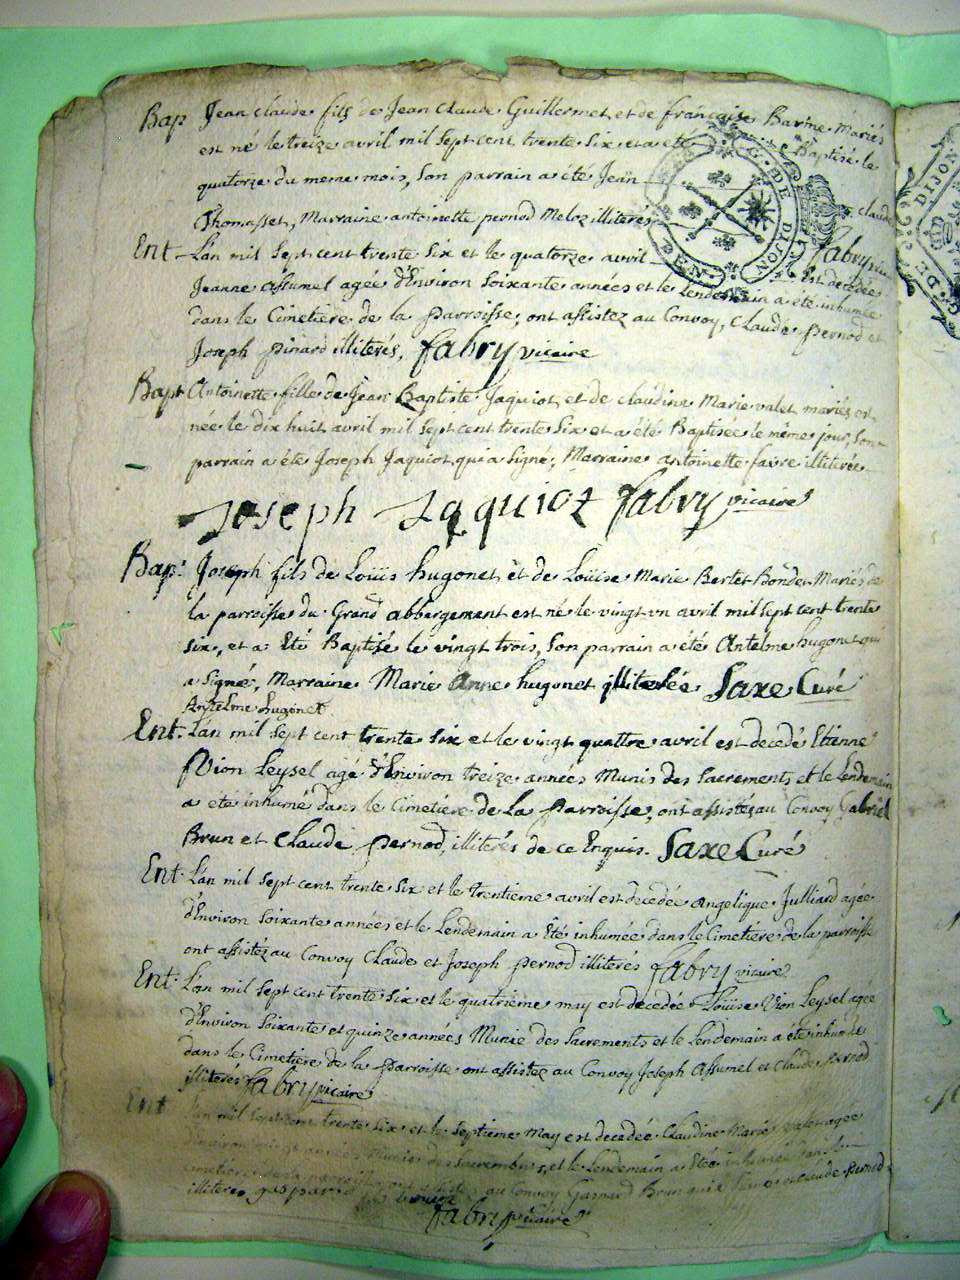 Bap Jean claude fils de Jean Claude Guillermet et de françoise Barine Mariés
est né le treize avril mil sept cent trente six et a été Baptisé le
quatorze du meme mois, son parrain a été Jean claude
Thomasset, Marraine antoinette pernod Meloz illiterés
fabry vicaire
GEN. DE DIJON
Ent Lan mil sept cent trente six et le quatorze avril Est decedée
Jeanne assumel agée d'Environ soixante années et le Lendemain a été inhumée
dans le Cimetière de la parroisse, ont assistez au Convoy, Claude pernod et
Joseph pinard illiterés, fabry vicaire
Bapt Antoinette fille de Jean Baptiste Jaquiot et de claudine Marie valet mariés est
née le dix huit avril mil sept cent trente six et a été Baptisée le même jour, son
parrain a été Joseph Jaquiot qui a signé, Marraine antoinette favre illiterée
Joseph Jaquiot fabry vicaire
Bap: Joseph fils de Loüis hugonet et de Loüise Marie Bertet Bondet Mariés de
la parroisse du Grand abbergement est né le vingt un avril mil sept cent trente
six, et a Eté Baptisé le vingt trois, son parrain a été Antelme hugonet qui
a signé, Marraine Marie Anne hugonet illiterée Saxe Curé
Antelme hugonet
Ent. Lan mil sept cent trente six et le vingt quattre avril est decedé Etienne
Vion Leysel agé d'Environ treize années Munis des sacrements et le Lendemain
a eté inhumé dans le Cimetiere de La parroisse, ont assistés au Convoy Gabriel
Brun et Claude pernod, illiterés de ce Enquis. Saxe Curé
Ent. L'an mil sept cent trente six et le trentieme avril est decedée angelique Julliard agée
d'Environ soixante années et le Lendemain a Eté inhumée dans le Cimetière de la parroisse
ont assistéz au Convoy Claude et Joseph pernod illiterés fabry vicaire
Ent. L'an mil sept cent trente six et le quatrieme may est decedée Loüise Vion Leysel agée
d'Environ soixante et quinze années Munie des sacrements et le Lendemain a été inhumée
dans le Cimetiere de la parroisse ont assistez au Convoy Joseph Assumel et Claude pernod
illiterés fabry vicaire
Ent L'an mil sept cent trente six et le septieme May est decedée Claudine Marie valet agée
d'environ vingt années Munie des sacrements, et le Lendemain a Eté inhumée dans le
cimetiere de la parroisse ont assistez au Convoy Gaspard Brun qui a signé et claude pernod
illiteré, gaspard brun
fabry vicaire